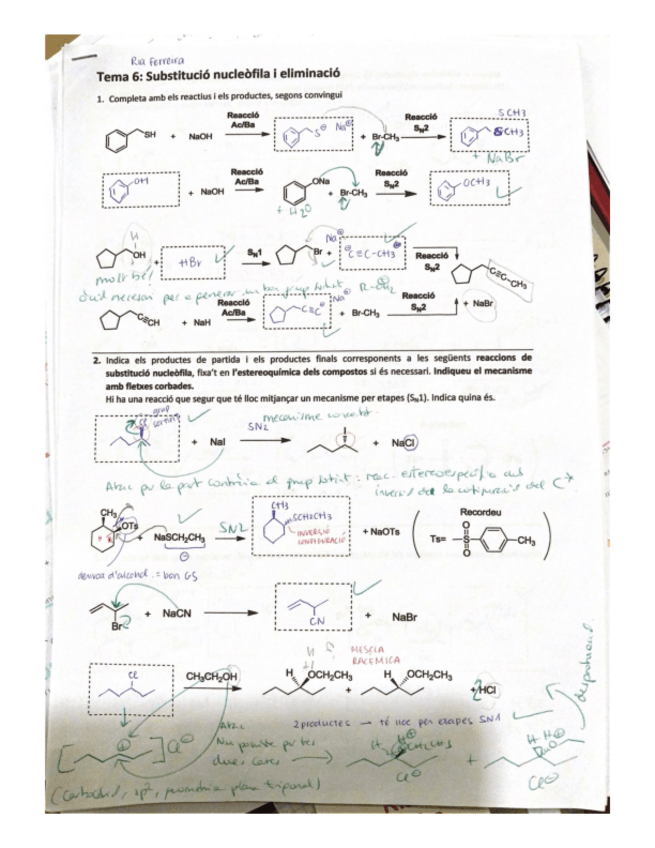 Ria Ferreira
Tema 6: Substitució nucleòfila i eliminació
1. Completa amb els reactius i els productes, segons convingui
SH + NaOH Reacció Ac/Ba S⊖ Na⊕ + Br-CH₃ Reacció SN2 SCH3 SCH3
+ NaBr
OH + NaOH Reacció Ac/Ba ONa + Br-CH₃ Reacció SN2 OCH3
+ H2O
H
OH + HBr SN1 Br + Na⊕ ⊖C≡C-CH3 Reacció SN2 C≡C-CH₃
molt bé!
+ NaBr
C≡CH + NaH Reacció Ac/Ba C≡C⊖ Na⊕ + Br-CH₃ Reacció SN2
2. Indica els productes de partida i els productes finals corresponents a les següents reaccions de
substitució nucleòfila, fixa't en l'estereoquímica dels compostos si és necessari. Indiqueu el mecanisme
amb fletxes corbades.
Hi ha una reacció que segur que té lloc mitjançar un mecanisme per etapes (SN1). Indica quina és.
grup sortint
mecanisme concertat
+ NaI SN2 I + NaCl
Atac per la part contrària al grup sortint: reac. estereoespecífica amb
inversió de la configuració del C*
CH₃ OTs + NaSCH₂CH₃ SN2 CH3 SCH2CH3 + NaOTs
INVERSIÓ CONFIGURACIÓ
Recordeu
Ts= O S O CH₃
derivat d'alcohol = bon GS
Br + NaCN CN + NaBr
MESCLA RACEMICA
Cl CH₃CH₂OH H OCH₂CH₃ + H OCH₂CH₃ + HCl
2 productes → té lloc per etapes SN1
Atac
Cl⊖
dues cares
H H⊕
Cl⊖ + Cl⊖
(carbocatió, sp², geometria plana trigonal)